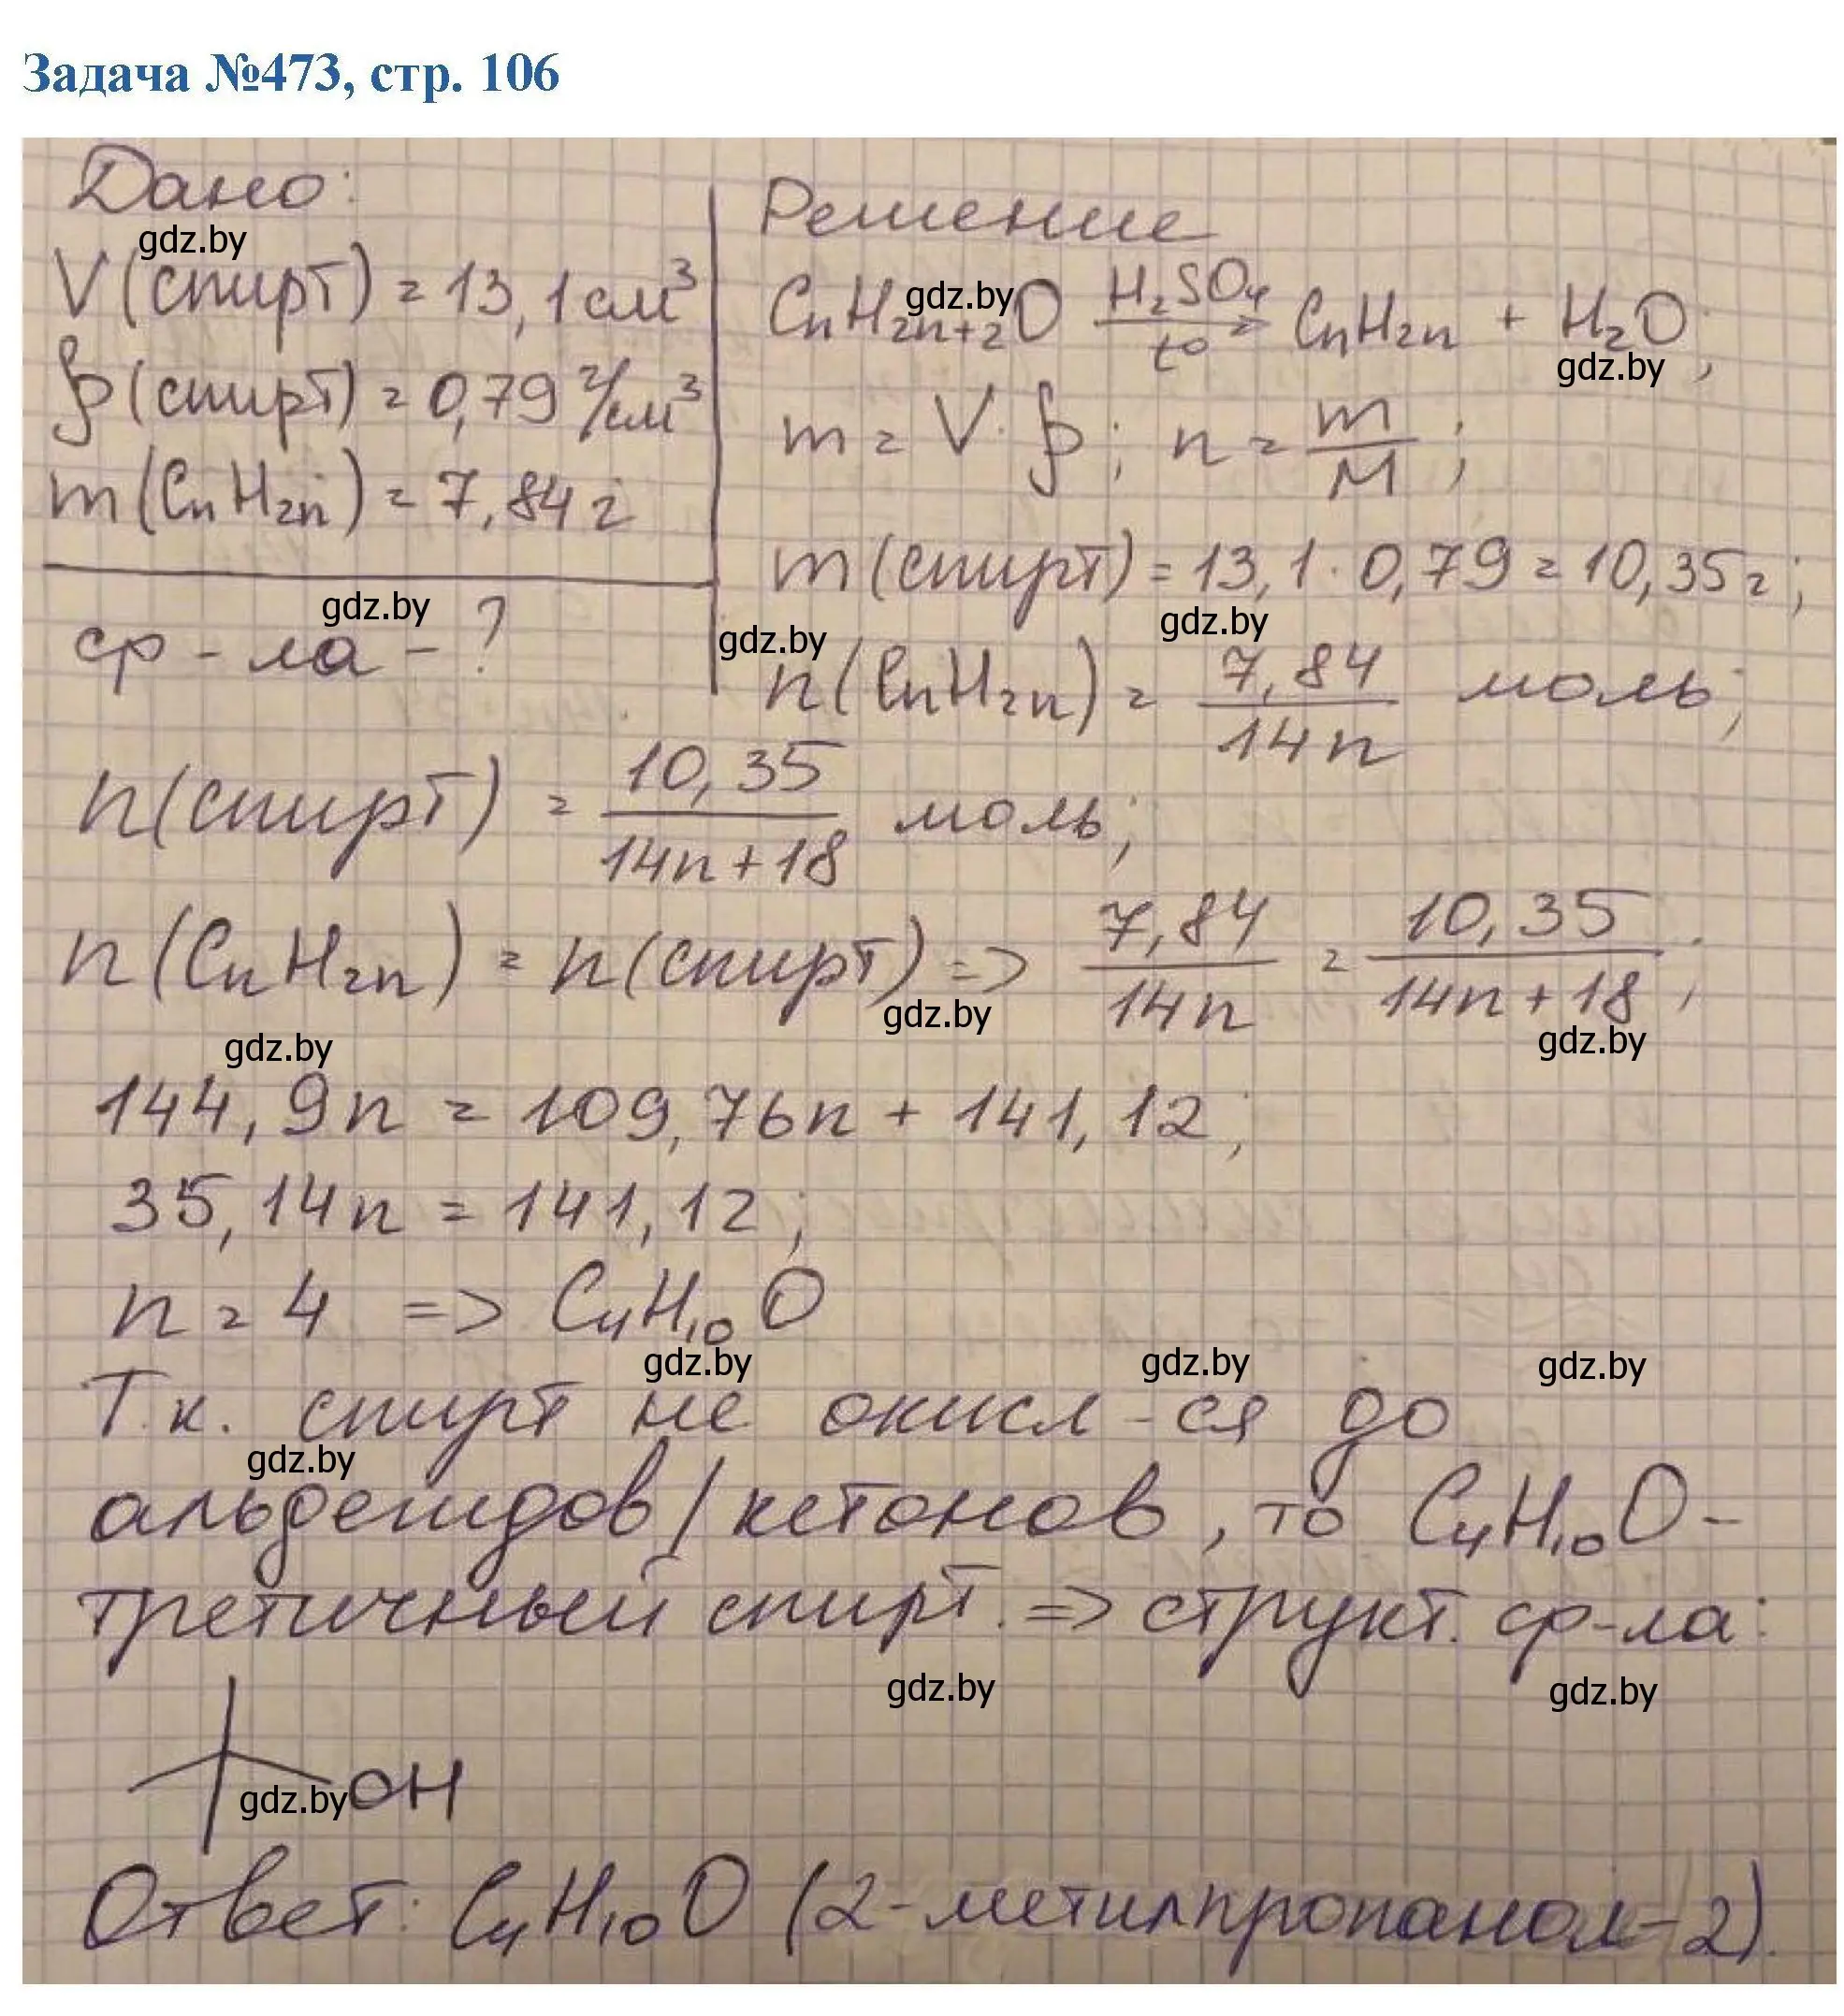 Задача №473, стр. 106
Дано:
gdz.by
V(спирт) = 13,1 см³
ρ(спирт) = 0,79 г/см³
m(CnH2n) = 7,84 г
gdz.by
ф-ла - ?
Решение
gdz.by
CnH2n+2O H2SO4 → t° CnH2n + H2O;
gdz.by
m = V · ρ; n = m/M;
m(спирт) = 13,1 · 0,79 = 10,35 г;
gdz.by gdz.by
n(CnH2n) = 7,84/14n моль;
n(спирт) = 10,35/14n+18 моль;
n(CnH2n) = n(спирт) => 7,84/14n = 10,35/14n+18;
gdz.by gdz.by gdz.by
144,9n = 109,76n + 141,12;
35,14n = 141,12;
n = 4 => C4H10O
gdz.by gdz.by gdz.by
Т.к. спирт не окисл-ся до
gdz.by
альдегидов/кетонов, то C4H10O-
третичный спирт. => структ. ф-ла:
gdz.by gdz.by
OH
gdz.by
Ответ: C4H10O (2-метилпропанол-2).